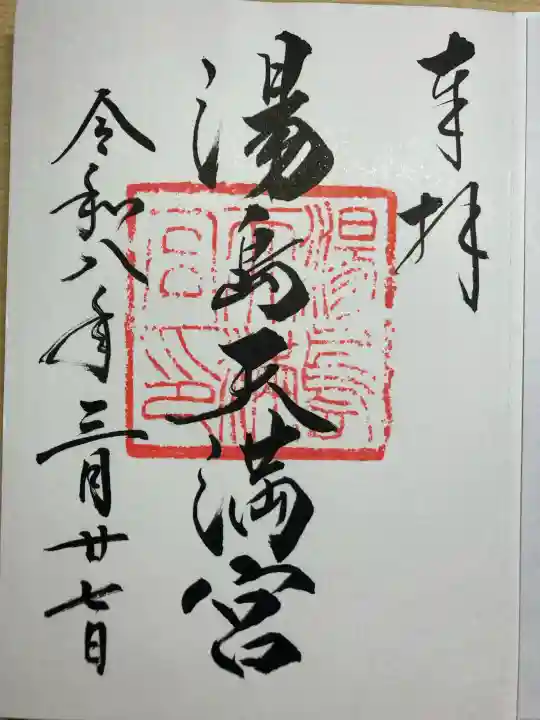 奉拝
湯島天満宮
湯島天満宮印
令和八年三月廿七日